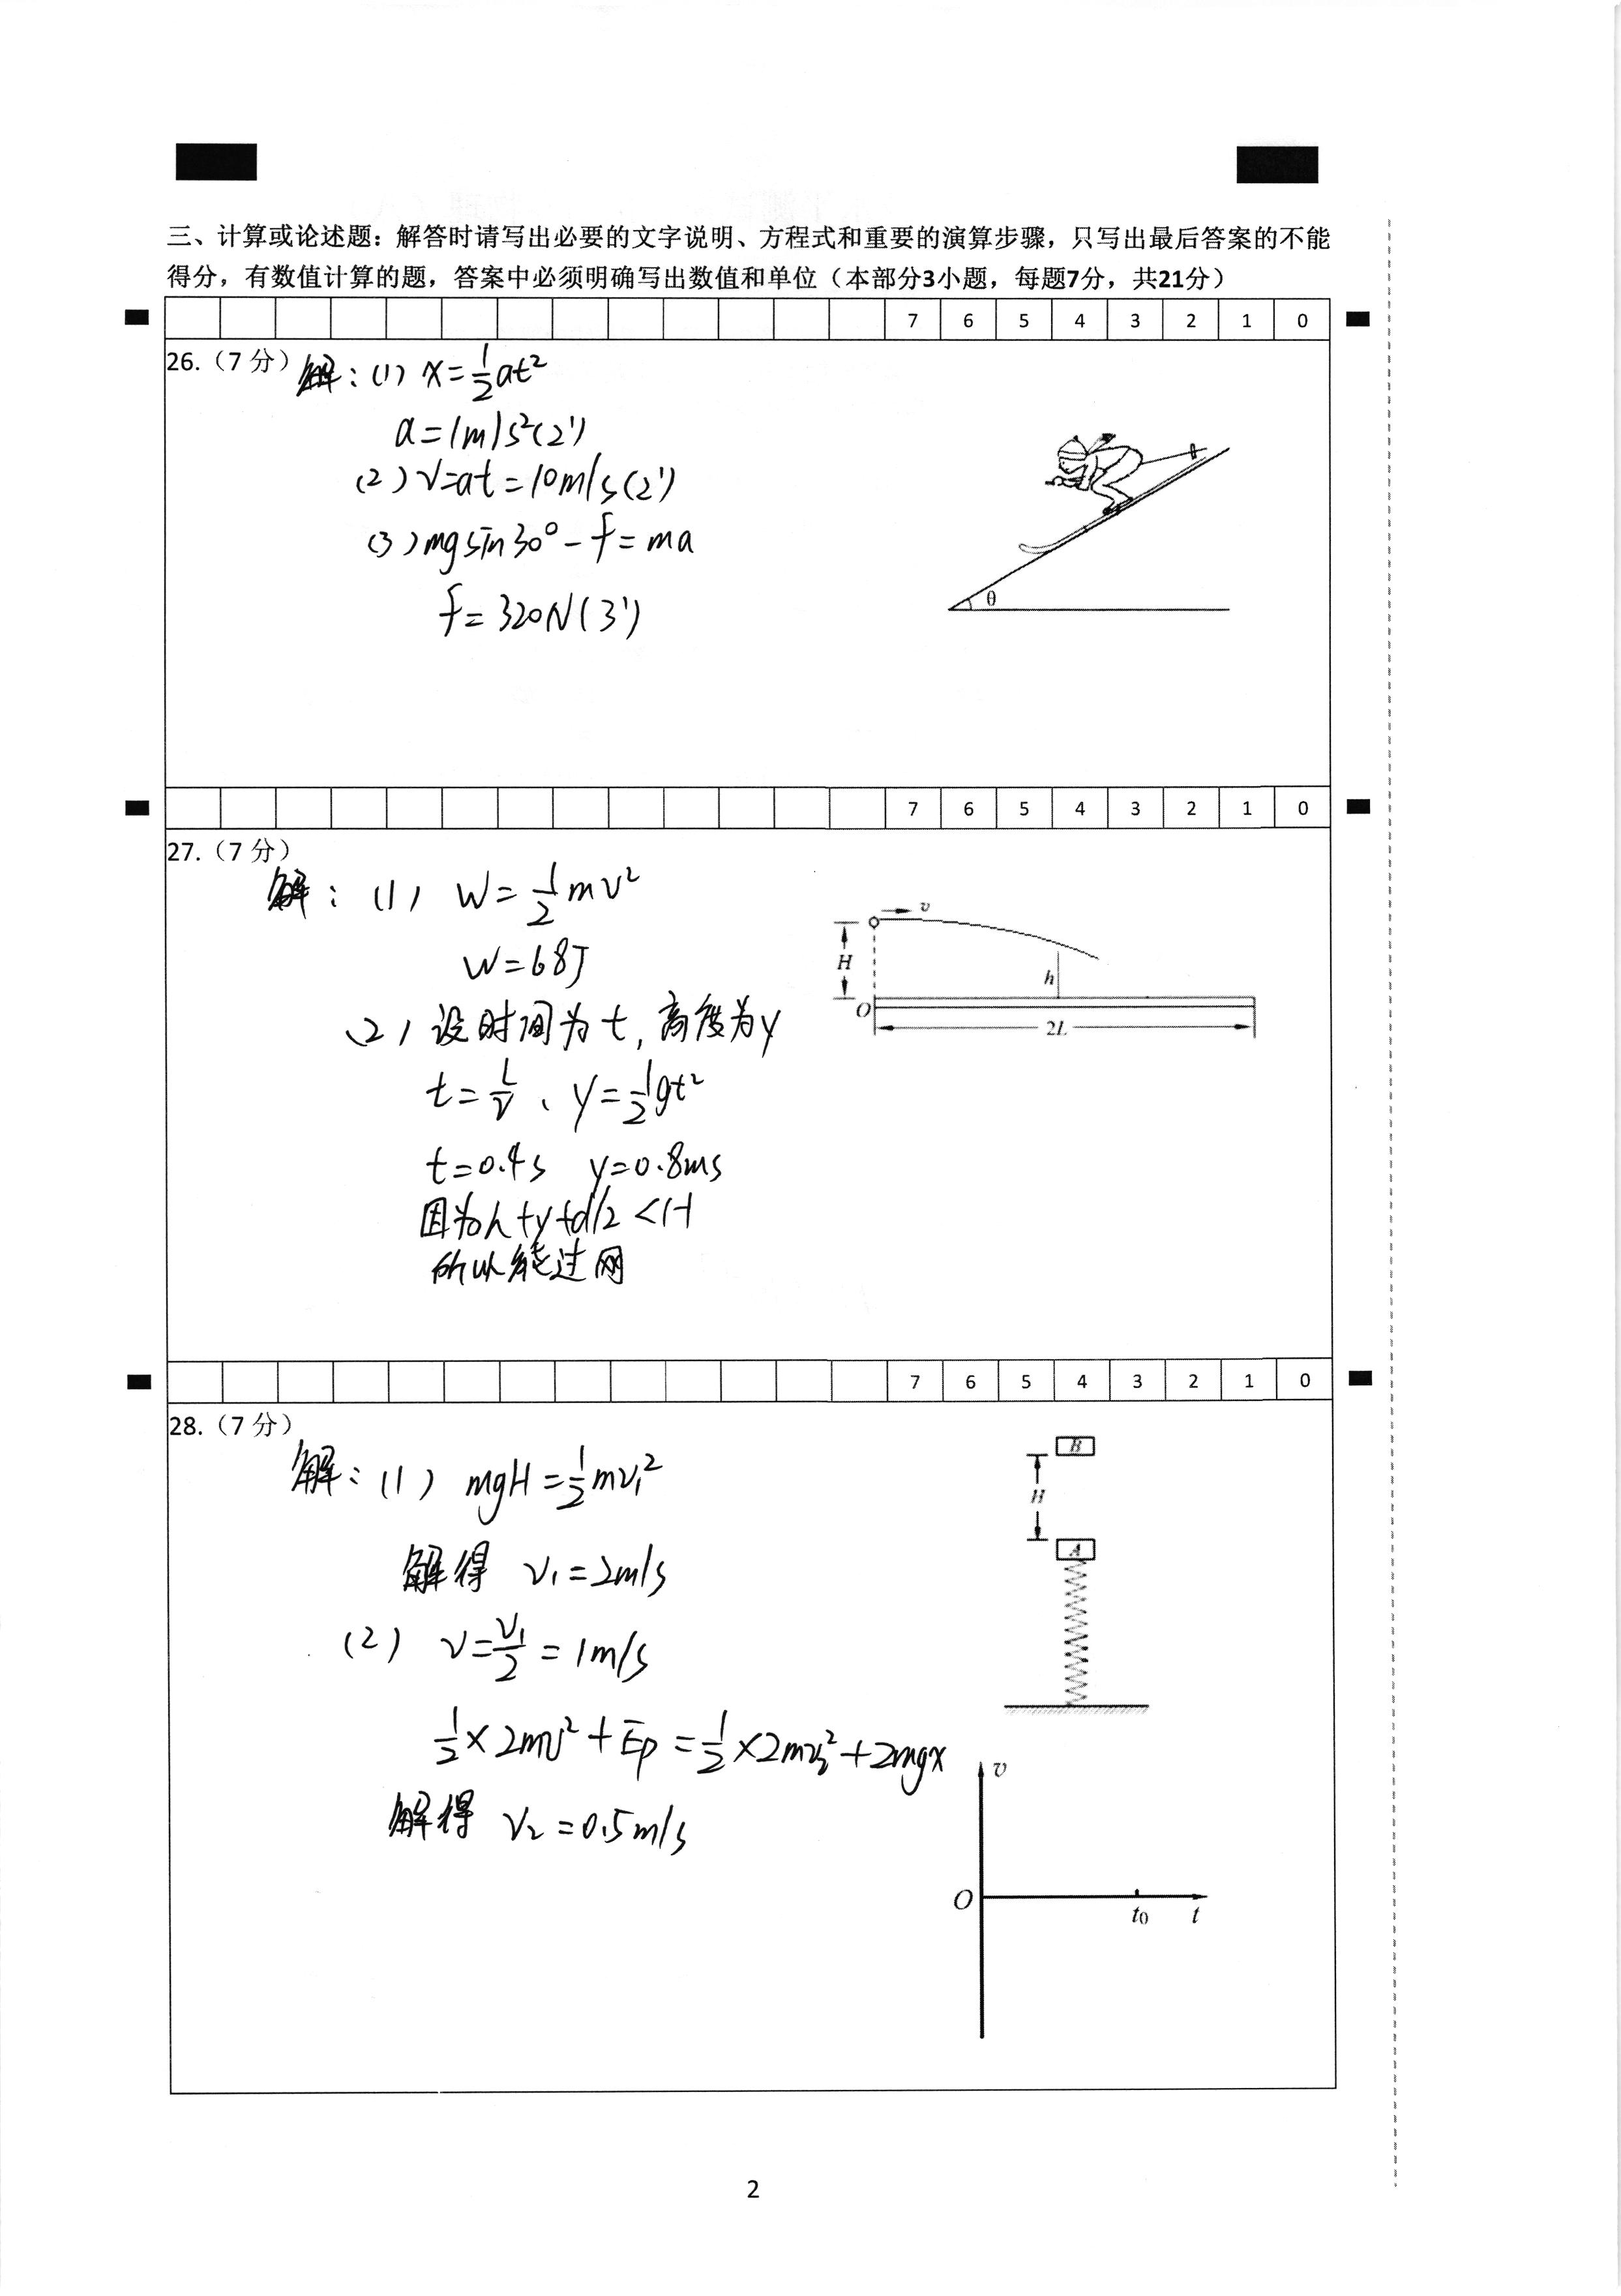 三、计算或论述题：解答时请写出必要的文字说明、方程式和重要的演算步骤，只写出最后答案的不能
得分，有数值计算的题，答案中必须明确写出数值和单位（本部分3小题，每题7分，共21分）
7 6 5 4 3 2 1 0
26.（7 分）解：(1) x=½at²
a=1m/s²(2')
(2) v=at=10m/s(2')
(3) mgsin30°-f=ma
f=320N(3')
θ
7 6 5 4 3 2 1 0
27.（7 分）
解：(1) W=½mv²
W=68J
(2) 设时间为t，高度为y
t=L/v、y=½gt²
t=0.4s y=0.8ms
因为h+y+d/2<H
所以能过网
v
H
h
O
2L
7 6 5 4 3 2 1 0
28.（7 分）
解：(1) mgH=½mv₁²
解得 v₁=2m/s
(2) v=v₁/2=1m/s
½×2mv²+Ep=½×2mv₂²+2mgx
解得 v₂=0.5m/s
B
H
A
v
O
t₀ t
2